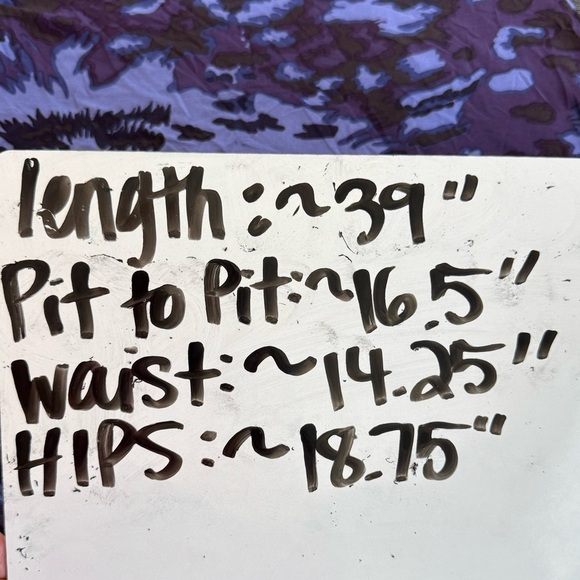 length: ~39"
Pit to Pit: ~16.5"
waist: ~14.25"
HIPS: ~18.75"